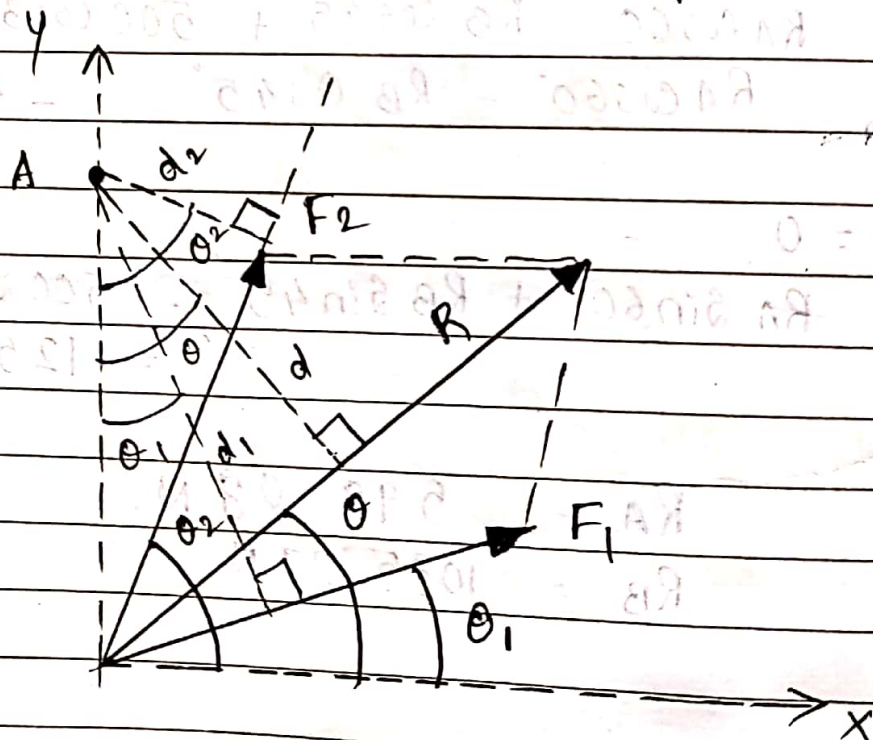 Y
A
d2
F2
θ2
R
θ
d
θ1
d1
θ2
θ
F1
θ1
X